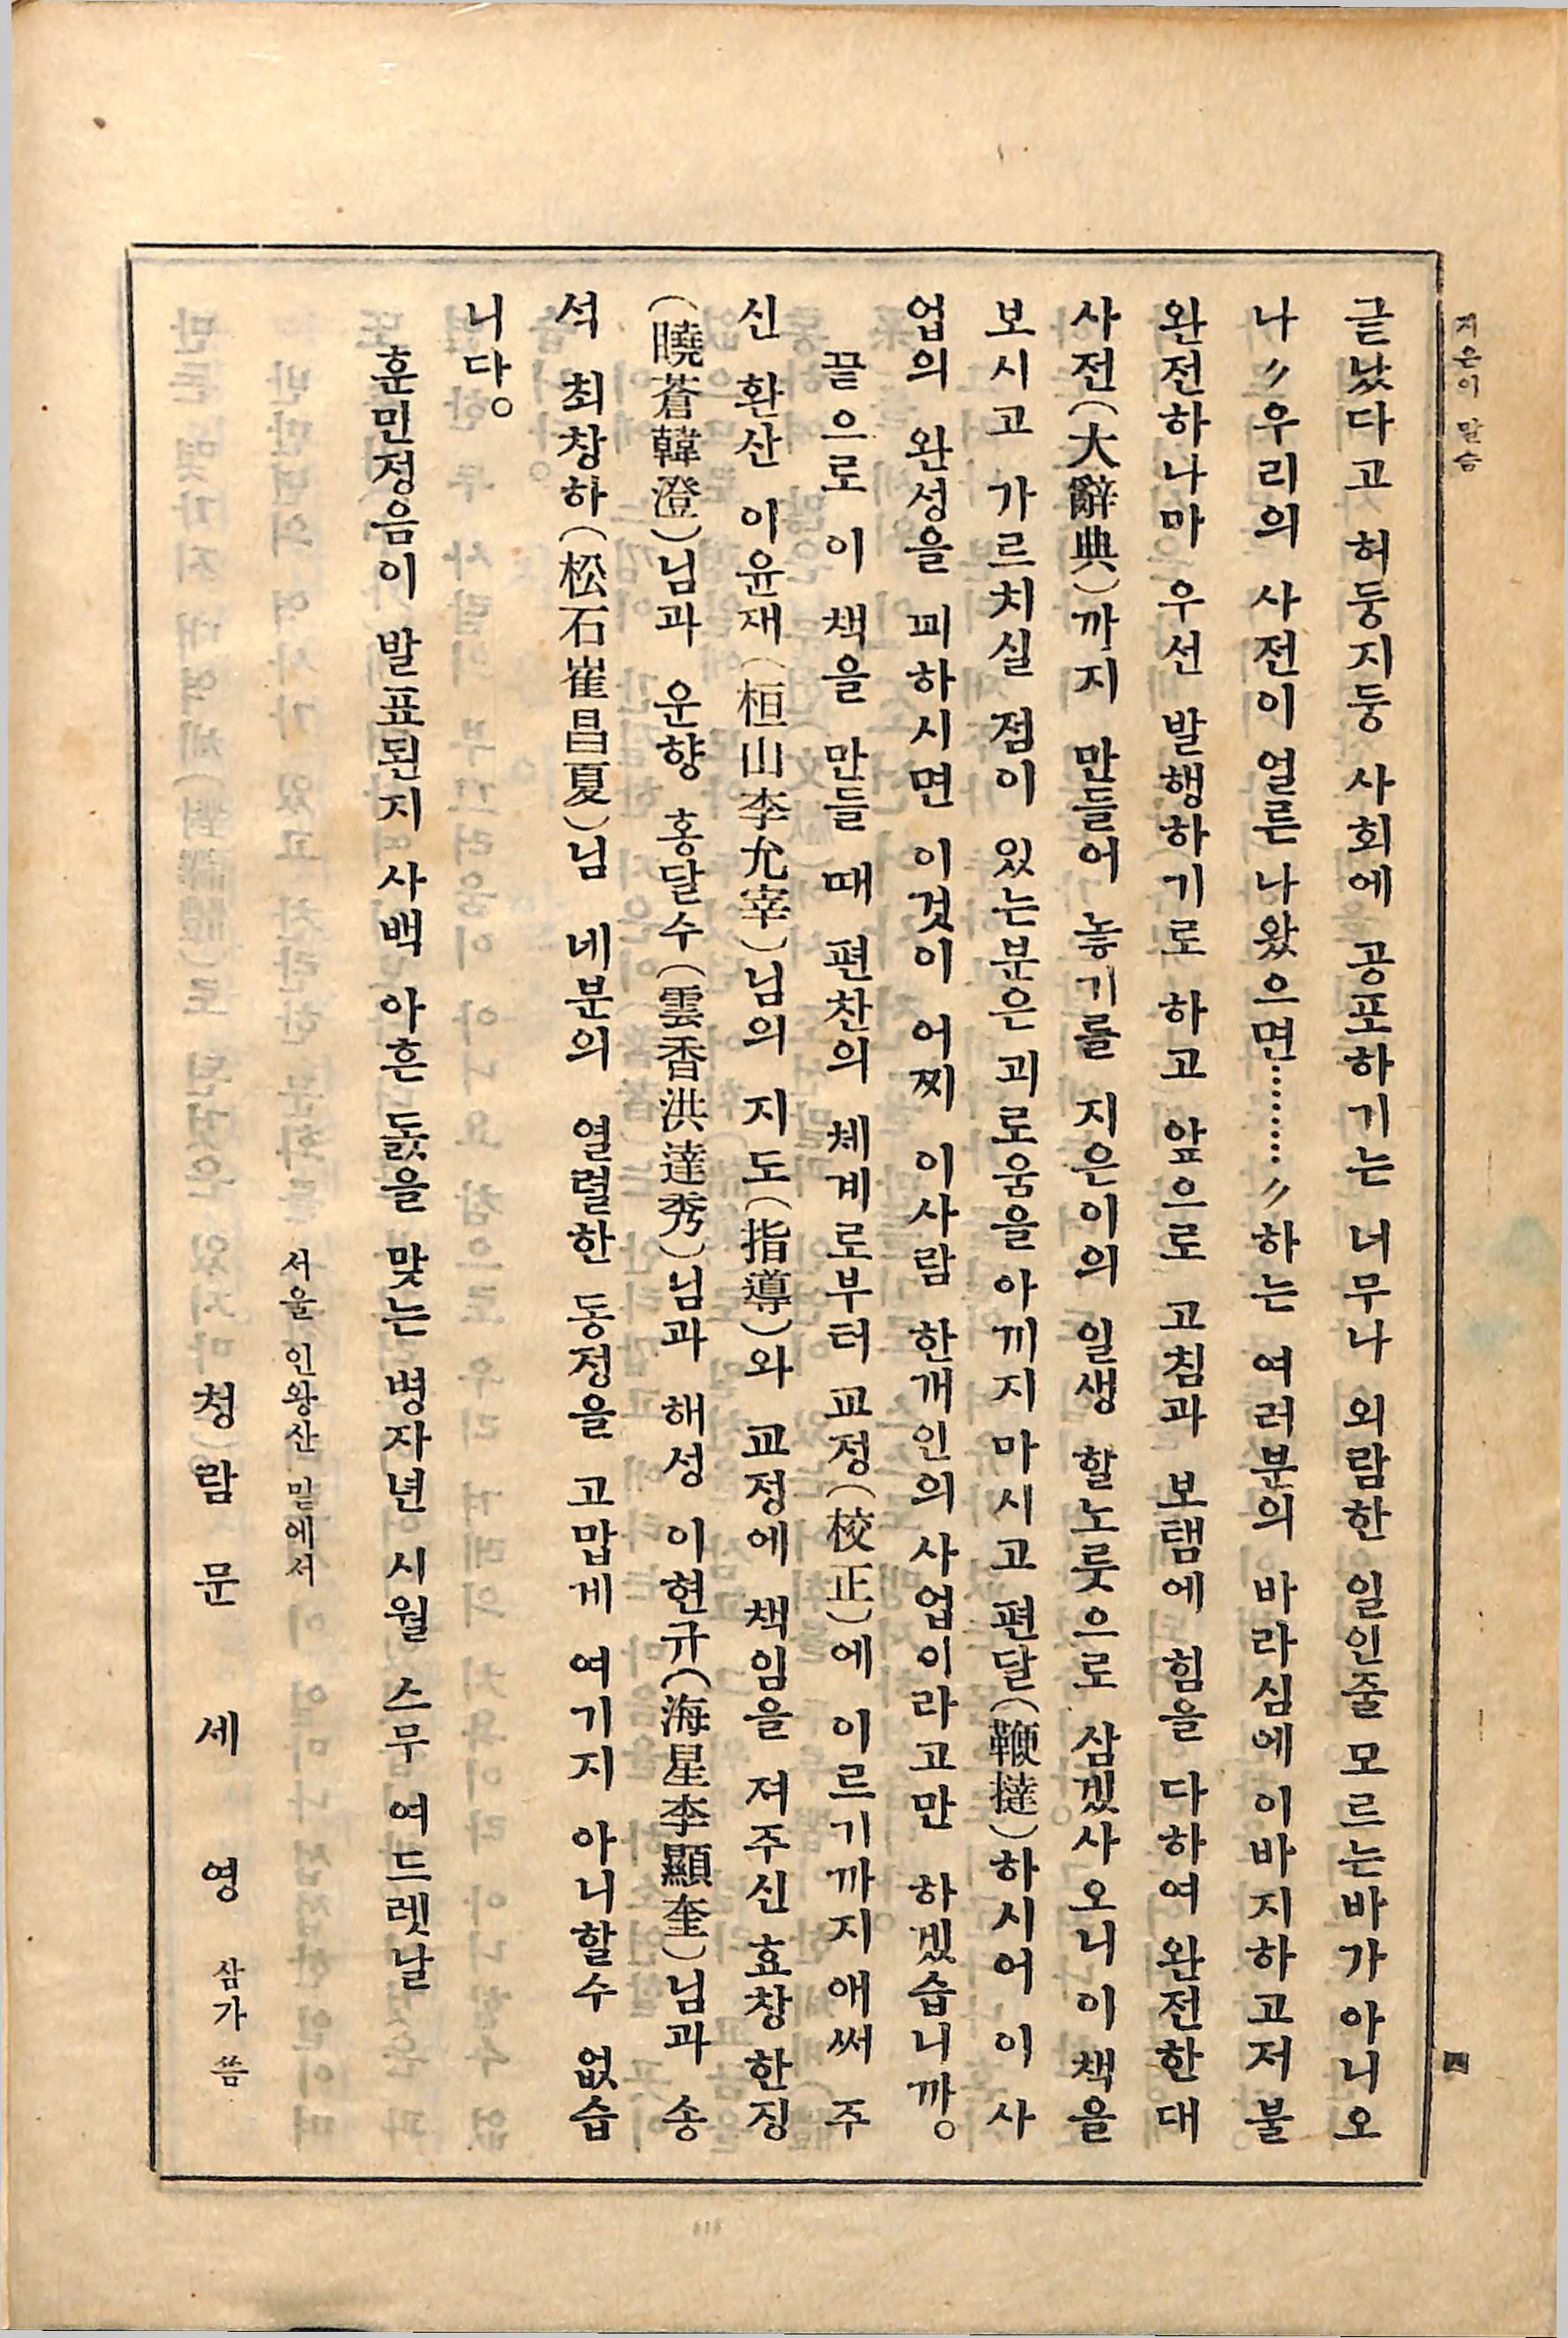 지은이 말슴
四
귿났다고 허둥지둥 사회에 공포하기는 너무나 외람한 일인줄 모르는바가 아니오
나 〃우리의 사전이 얼른 나왔으면………〃하는 여러분의 바라심에 이바지하고저 불
완전하나마 우선 발행하기로 하고 앞으로 고침과 보탬에 힘을 다하여 완전한 대
사전(大辭典)까지 만들어 놓기를 지은이의 일생 할노릇으로 삼겠사오니 이책을
보시고 가르치실 점이 있는분은 괴로움을 아끼지 마시고 편달(鞭撻)하시어 이 사
업의 완성을 꾀하시면 이것이 어찌 이사람 한개인의 사업이라고만 하겠습니까。
끝으로 이 책을 만들 때 편찬의 체계로부터 교정(校正)에 이르기까지 애써 주
신 환산 이윤재(桓山李允宰)님의 지도(指導)와 교정에 책임을 져주신 효창 한징
(曉蒼韓澄)님과 운향 홍달수(雲香洪達秀)님과 해성 이현규(海星李顯奎)님과 송
석 최창하(松石崔昌夏)님 네분의 열렬한 동정을 고맙게 여기지 아니할수 없습
니다。
훈민정음이 발표된지 사백 아흔 돐을 맞는 병자년 시월 스무 여드렛날
서울 인왕산 밑에서
청람 문 세 영 삼가 씀